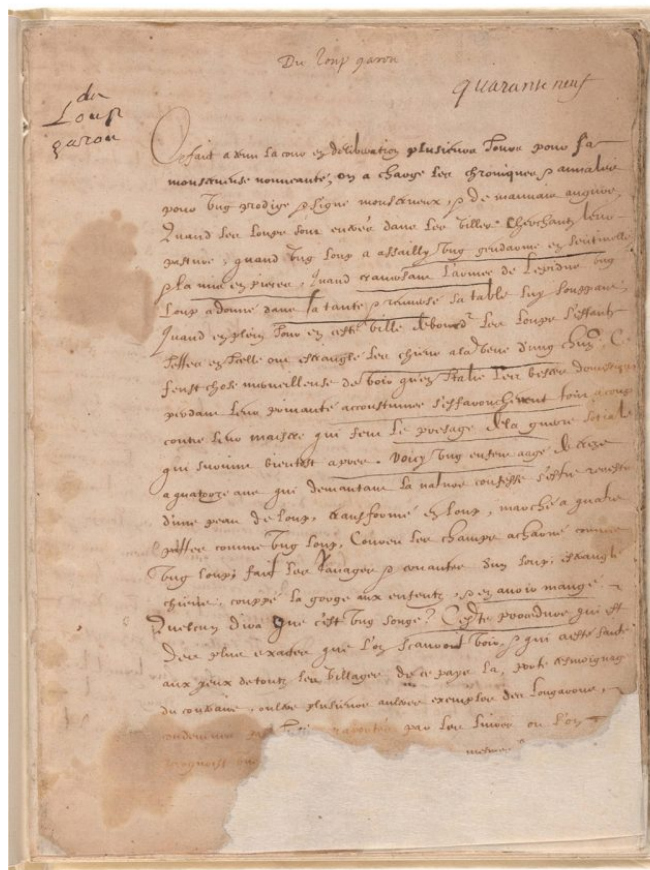 Du loup garou
quarante neuf
du
Loup
garou
Ce fait a tenu la cour en deliberation plusieurs Jours pour sa
monstrueuse nouveauté, on a charge les chroniques & annales
pour ung prodige & signe monstrueux, & de mauvais augure,
Quand les loups sont entrés dans les villes cherchants leur
pasture, quand ung loup a assailly ung gendarme en sentinelle
& la mis en pieces, quand traversant l'armee de Lepidus ung
Loup a donné dans sa tante & renversé sa table luy souppant,
Quand en plein Jour en ceste ville de les loups s'estants
Jettes en Icelle ont estrangle les chiens a la veue d'ung ch Ce
feust chose merveilleuse de voir qu'en Italie les bestes domestiques
perdant leur privauté accoustumee s'effarouchevent tout a coup
contre leur maistre qui feut le presage de la guerre sociale
qui survint bientost apres. Voicy ung enfent aagé de treze
a quatorze ans qui dementant sa nature confesse s'estre revestu
d'une peau de loup, transformé en loup, marché a quatre
pattes comme ung loup, Coureu les champs acharné comme
ung loup, fait les ravages & d'un loup, estrangle
chiens, couppé la gorge aux enfents, & en avoir mangé.
Quelcun dira que c'est ung songe? Ceste procedure qui est
des plus exactes que l'on scauroit voir, & qui a este faite
aux yeux de touts les villages de ce pays la, porte tesmoignage
du contraire, oultre plusieurs aultres exemples des lougarous,
par les livres ou l'on